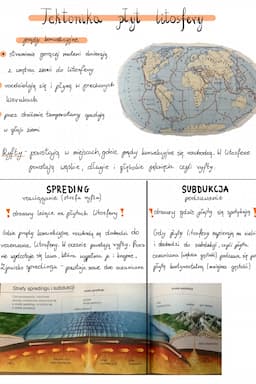 Tektonika płyt litosfery
prądy konwekcyjne
strumienie gorącej materii docierają
z wnętrza ziemi do litosfery
rozdzielają się i płyną w przeciwnych
kierunkach
przez obniżenie temperatury opadają
w głąb ziemi
Ryfty - powstają w miejscach, gdzie prądy konwekcyjne się rozchodzą. W litosferze
powstają wąskie, długie i głębokie pęknięcia czyli ryfty.
SPREDING
rozciąganie (strefa ryftu)
! obszary leżące na płytach litosfery !
Gdzie prądy konwekcyjne rozchodzą się dochodzi do
rozsuwania litosfery. W czasie powstają ryfty. Przez
nie wydostaje się lawa, która wypełnia je i krzepnie.
Zjawisko spreadingu - powstaje nowe dno oceaniczne
SUBDUKCJA
podsuwanie
! obszary gdzie płyty się spotykają !
Gdy płyty litosfery napierają na siebie
i dochodzi do subdukcji, czyli płyta
oceaniczna (większa gęstość) podsuwa się pod
płytę kontynentalną (mniejsza gęstość)
Strefy spredingu i subdukcji